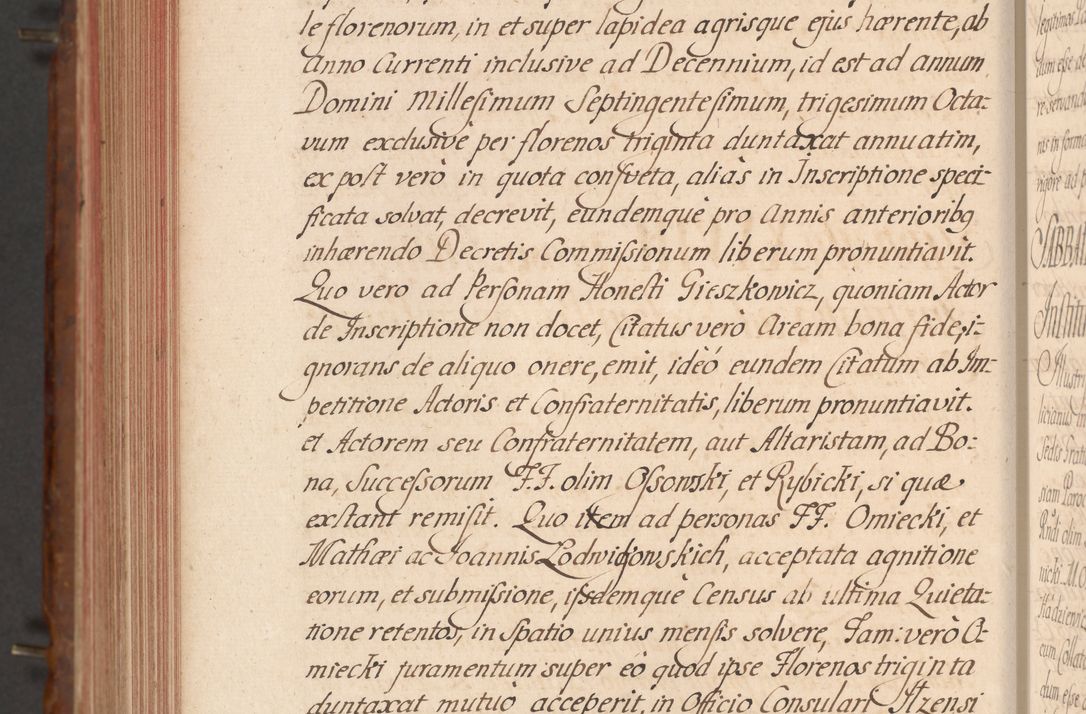 le florenorum, in et super lapidea agrisque ejus hærente, ab
Anno Currenti inclusive ad Decennium, id est ad annum
Domini Millesimum Septingentesimum, trigesimum Octa=
vum exclusivè per florenos triginta duntaxat annuatim,
ex post verò in quota consveta, aliàs in Inscriptione speci=
ficata solvat, decrevit, eundemquè pro Annis anterioribq
inhærendo Decretis Commissionum liberum pronuntiavit.
Quo vero ad Personam Honesti Gieszkowicz, quoniam Actor
de Inscriptione non docet, Citatus verò Aream bona fide, i=
gnorans de aliquo onere, emit, ideó eundem Citatum ab Im=
petitione Actoris et Confraternitatis, liberum pronuntiavit.
et Actorem seu Confraternitatem, aut Altaristam, ad Bo=
na, Successorum F.F. olim Ossowski, et Rybicki, si quæ
exstant remisit. Quo item ad personas FF. Omiecki, et
Mathæi ac Joannis Lodwigowskich, acceptata agnitione
eorum, et submissione, iisdemquè Census ab ultima Quieta=
tione retentos, in spatio unius mensis solvere, Fam: verò O=
miecki juramentum super eò quod ipse Florenos triginta
duntaxat mutuò acceperit, in Officio Consulari Ilzensi
legitimos
dum esse
re servand
nis in formâ
rigore ad
SABBA
Institu
Illustri
licianus in
Sedis
siam Paroc
Rndi olim
nicki M.
cum Collat
dum esse